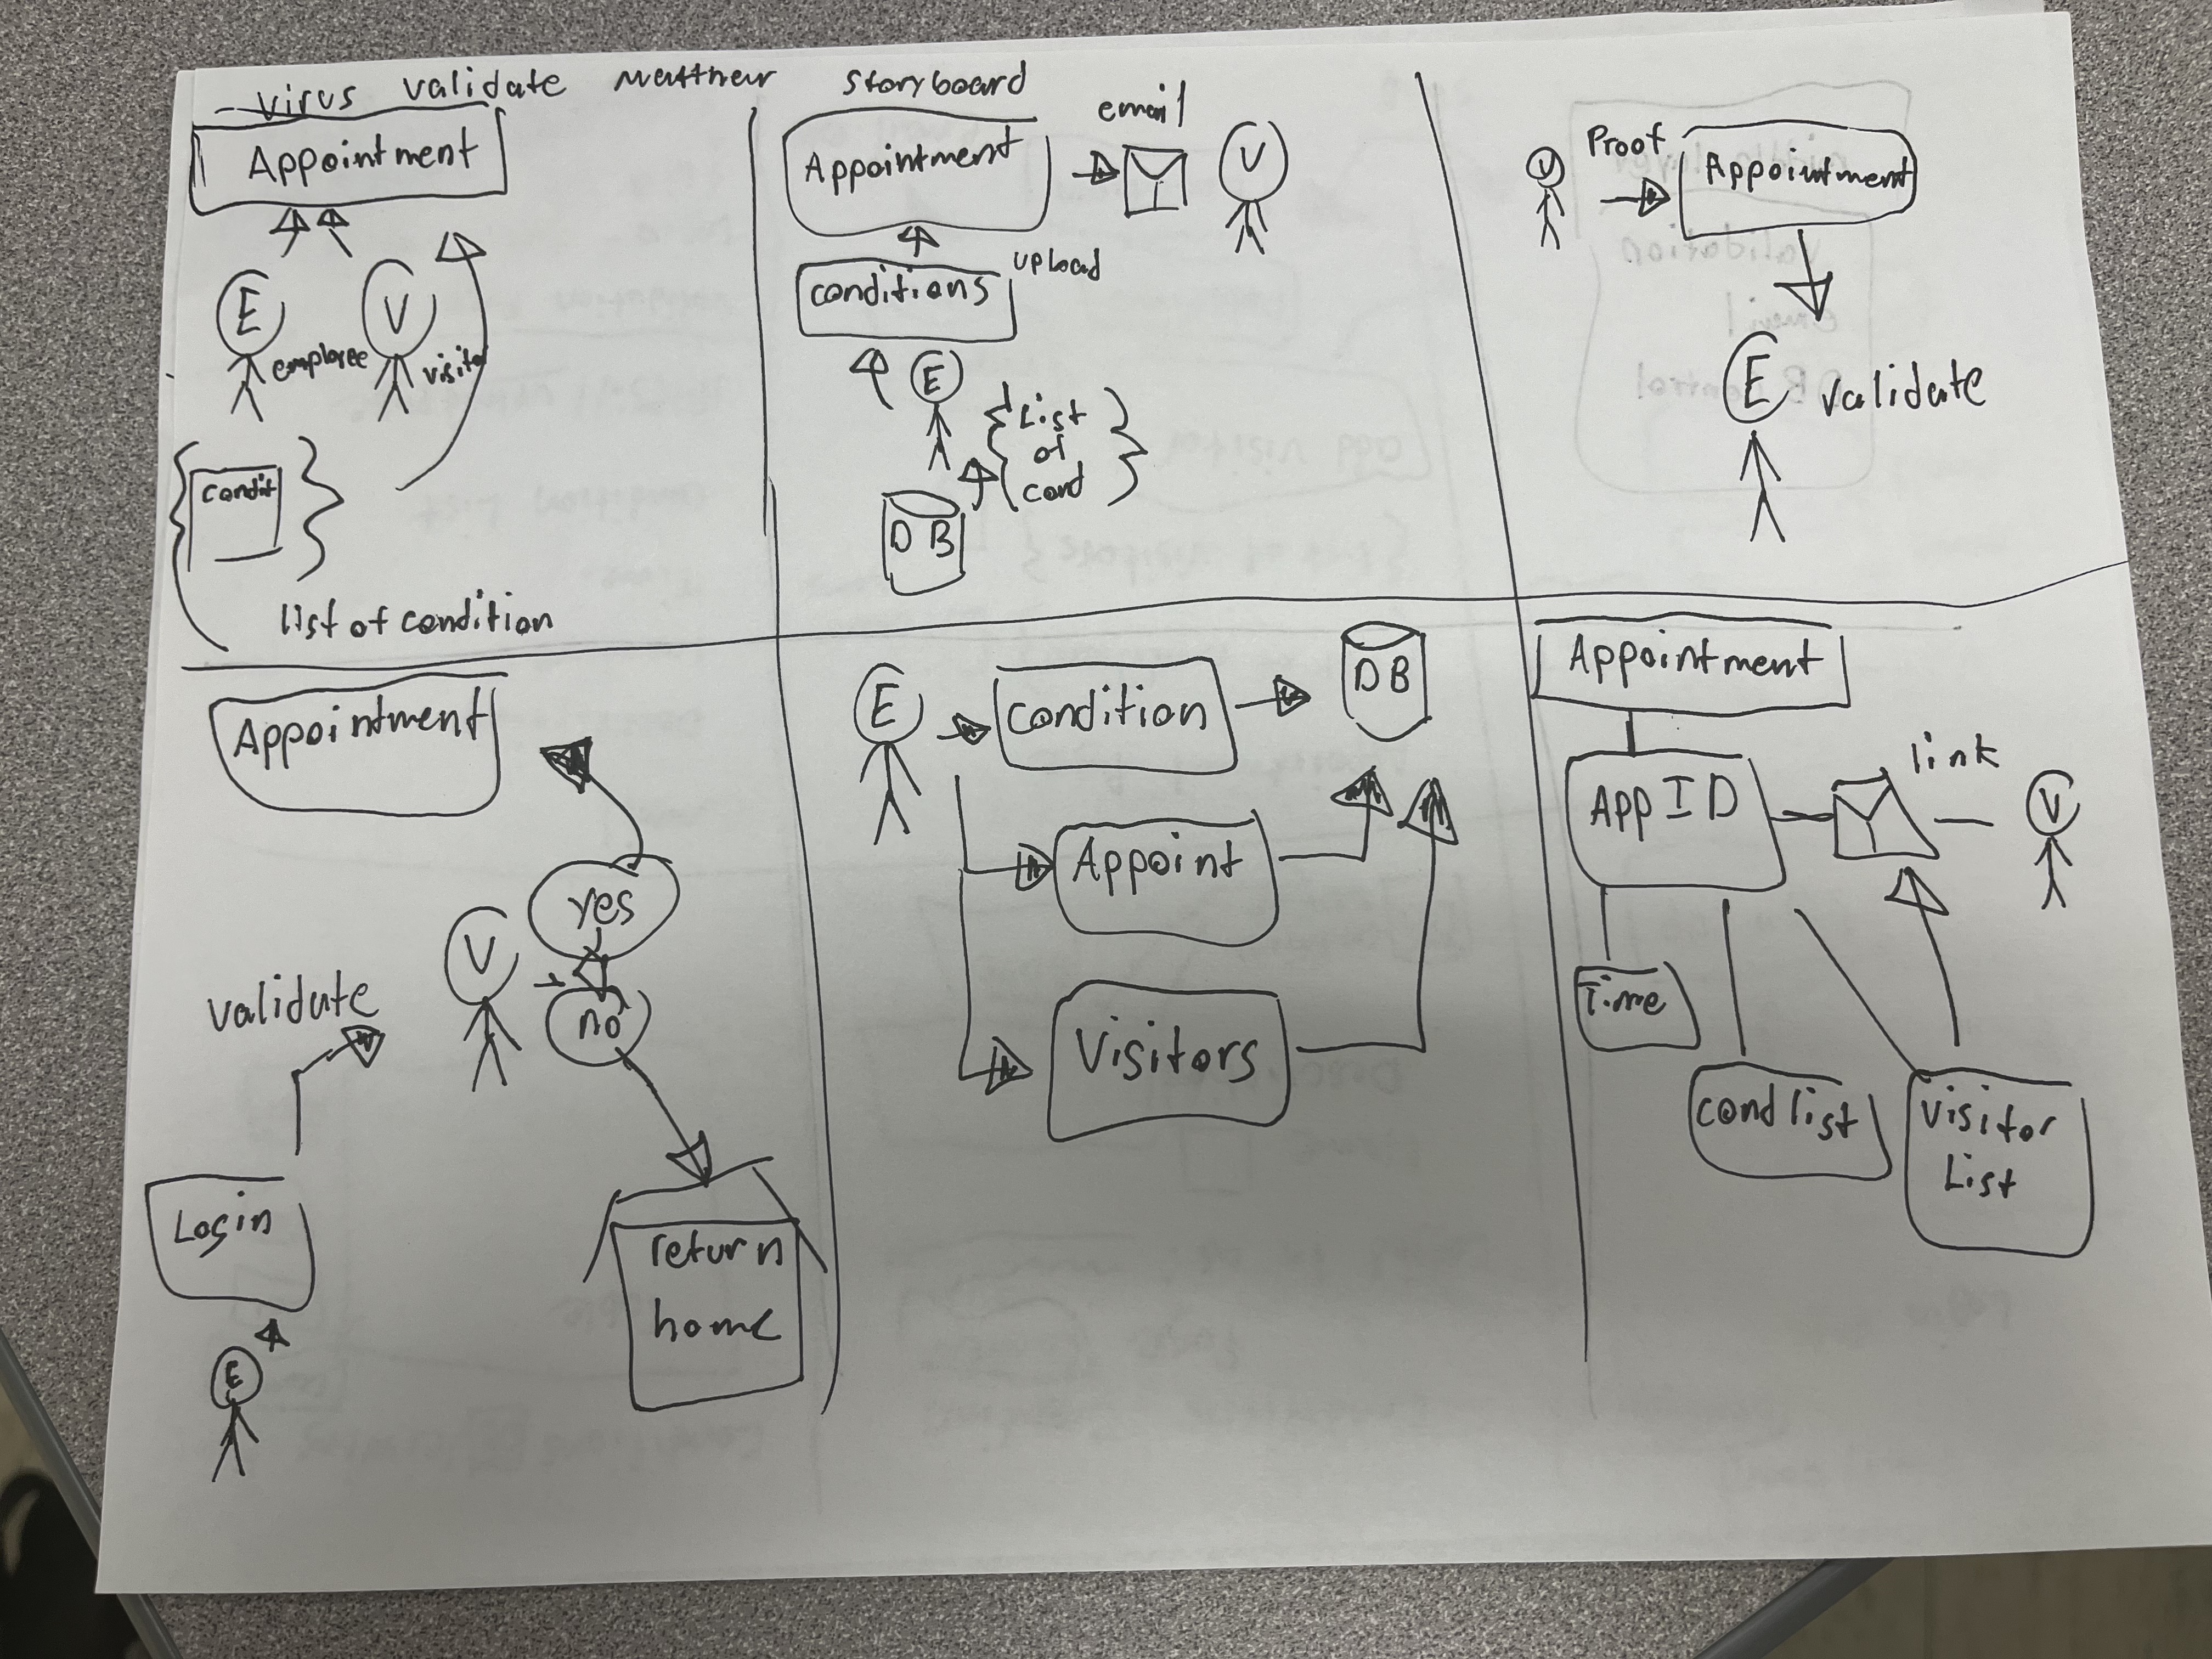 virus validate Matthew Storyboard
Appointment
E
employee
V
visitor
condit
list of condition
Appointment
email
V
conditions
upload
E
List
of
cond
D B
V
Proof
Appointment
E
validate
Appointment
yes
V
no
validate
Login
return
home
E
E
condition
D B
Appoint
Visitors
Appointment
App I D
link
V
Time
cond list
visitor
List